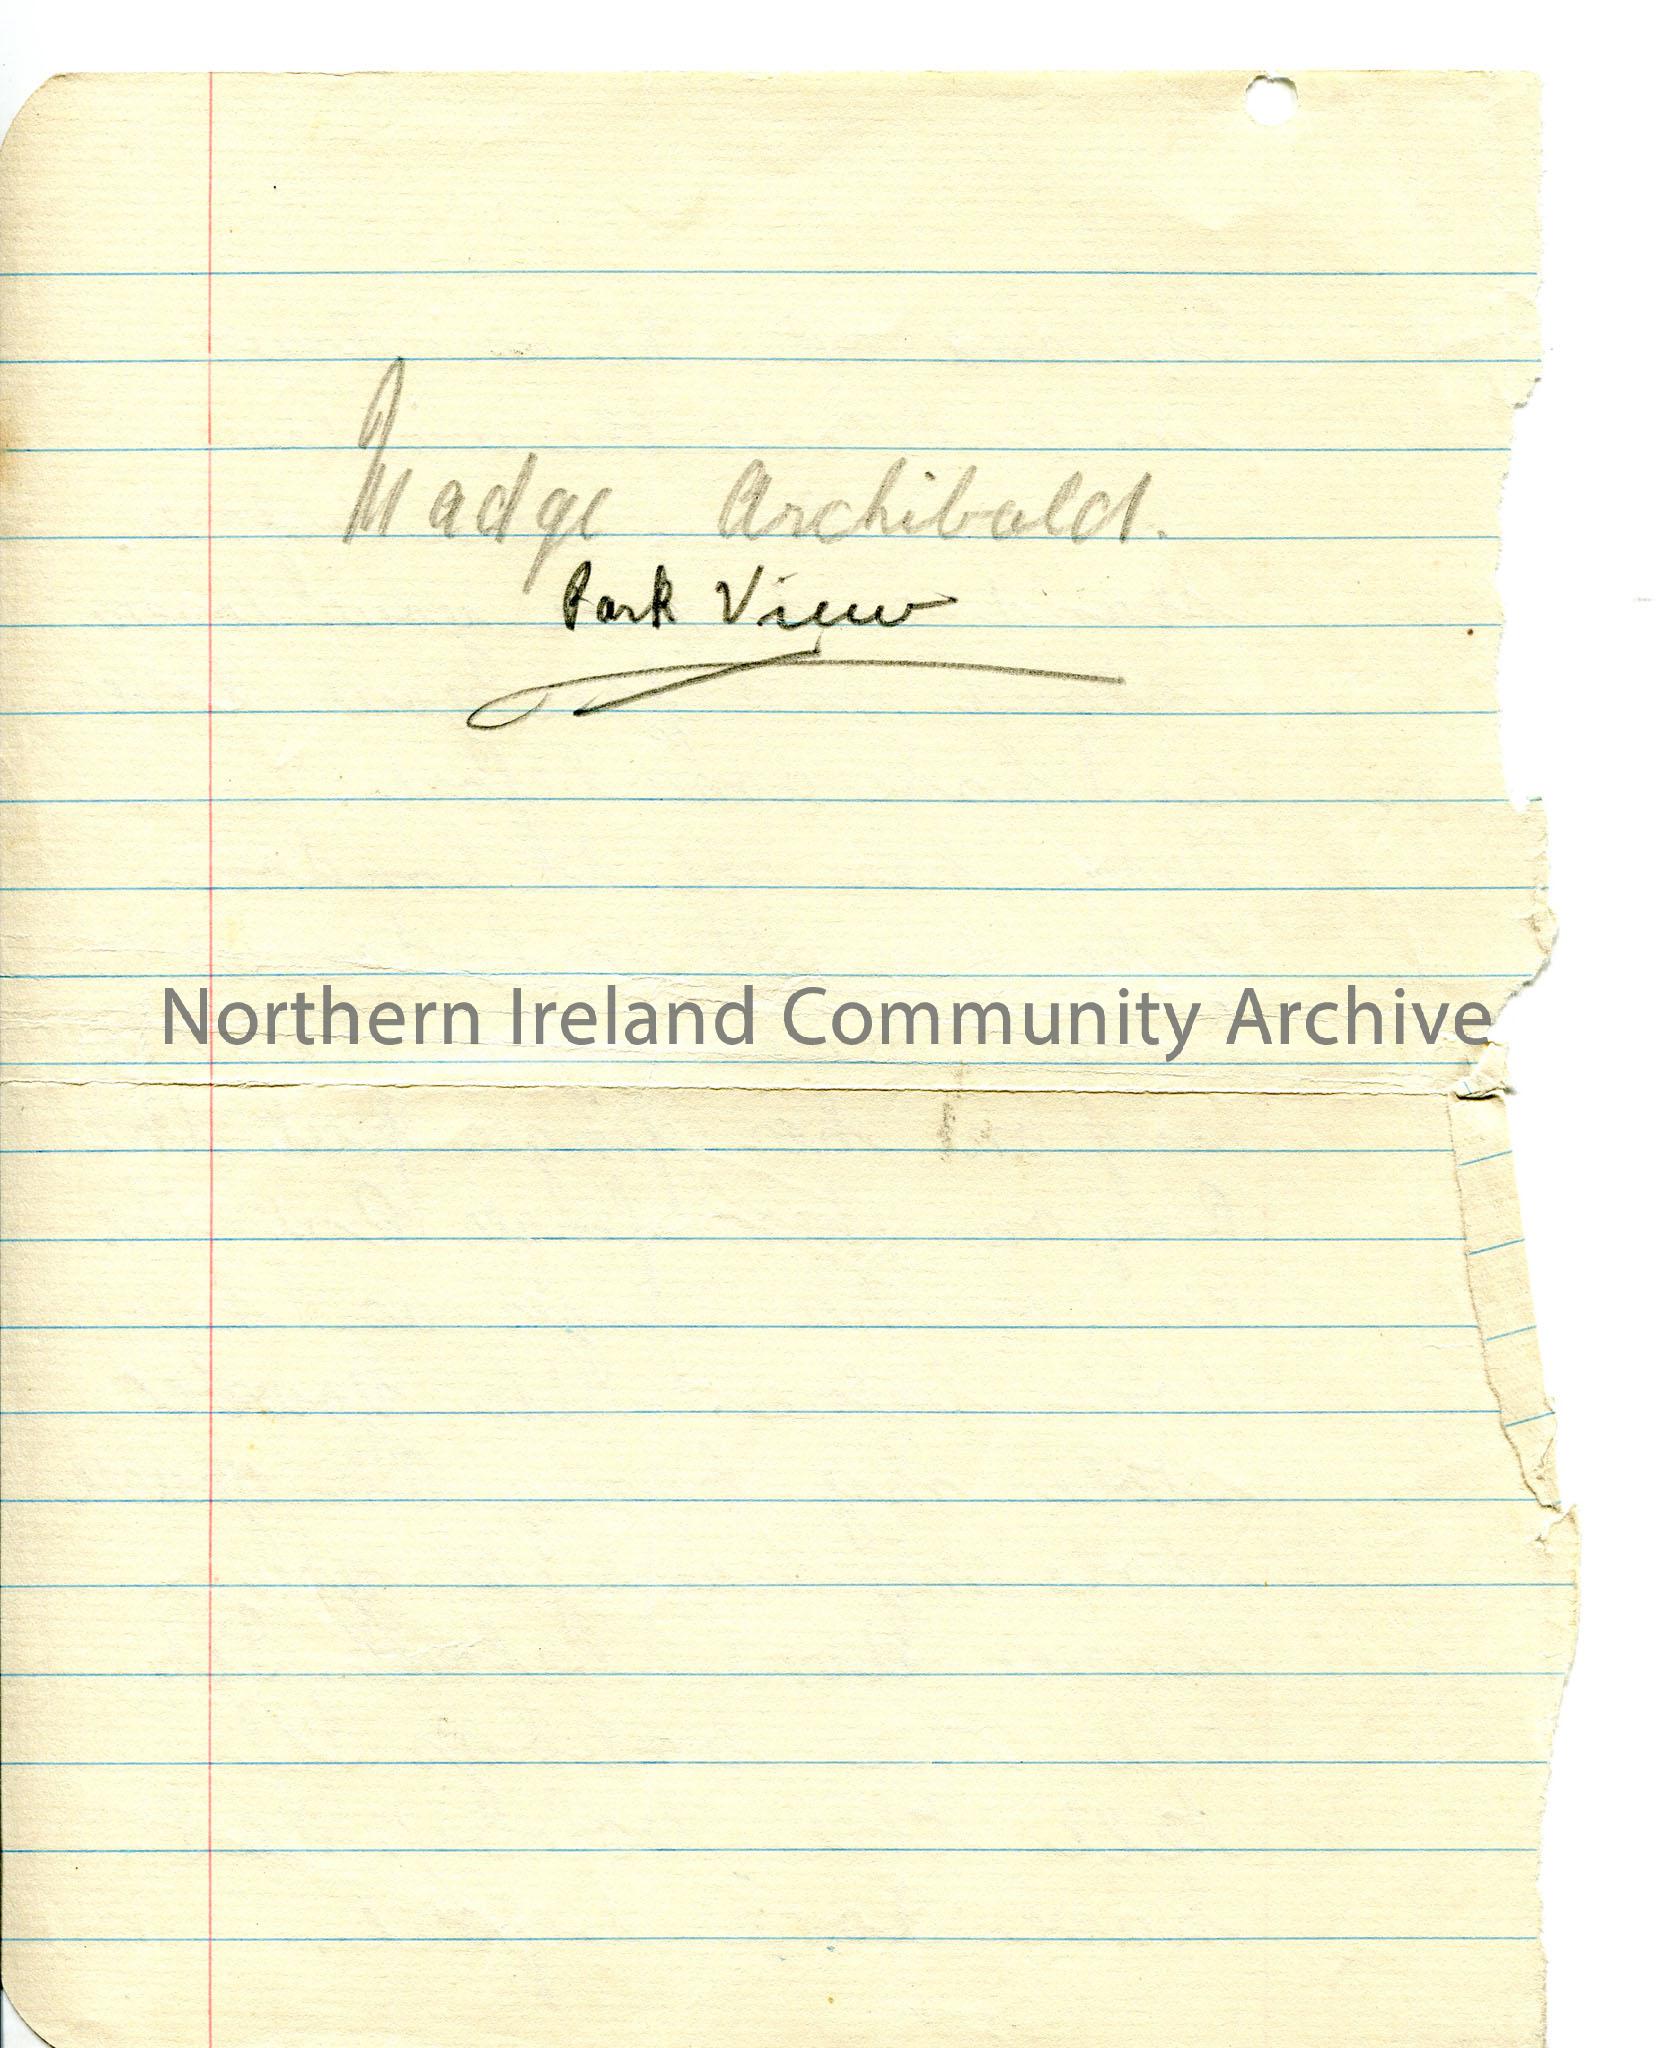 Madge Archibald.
Park View
Northern Ireland Community Archive